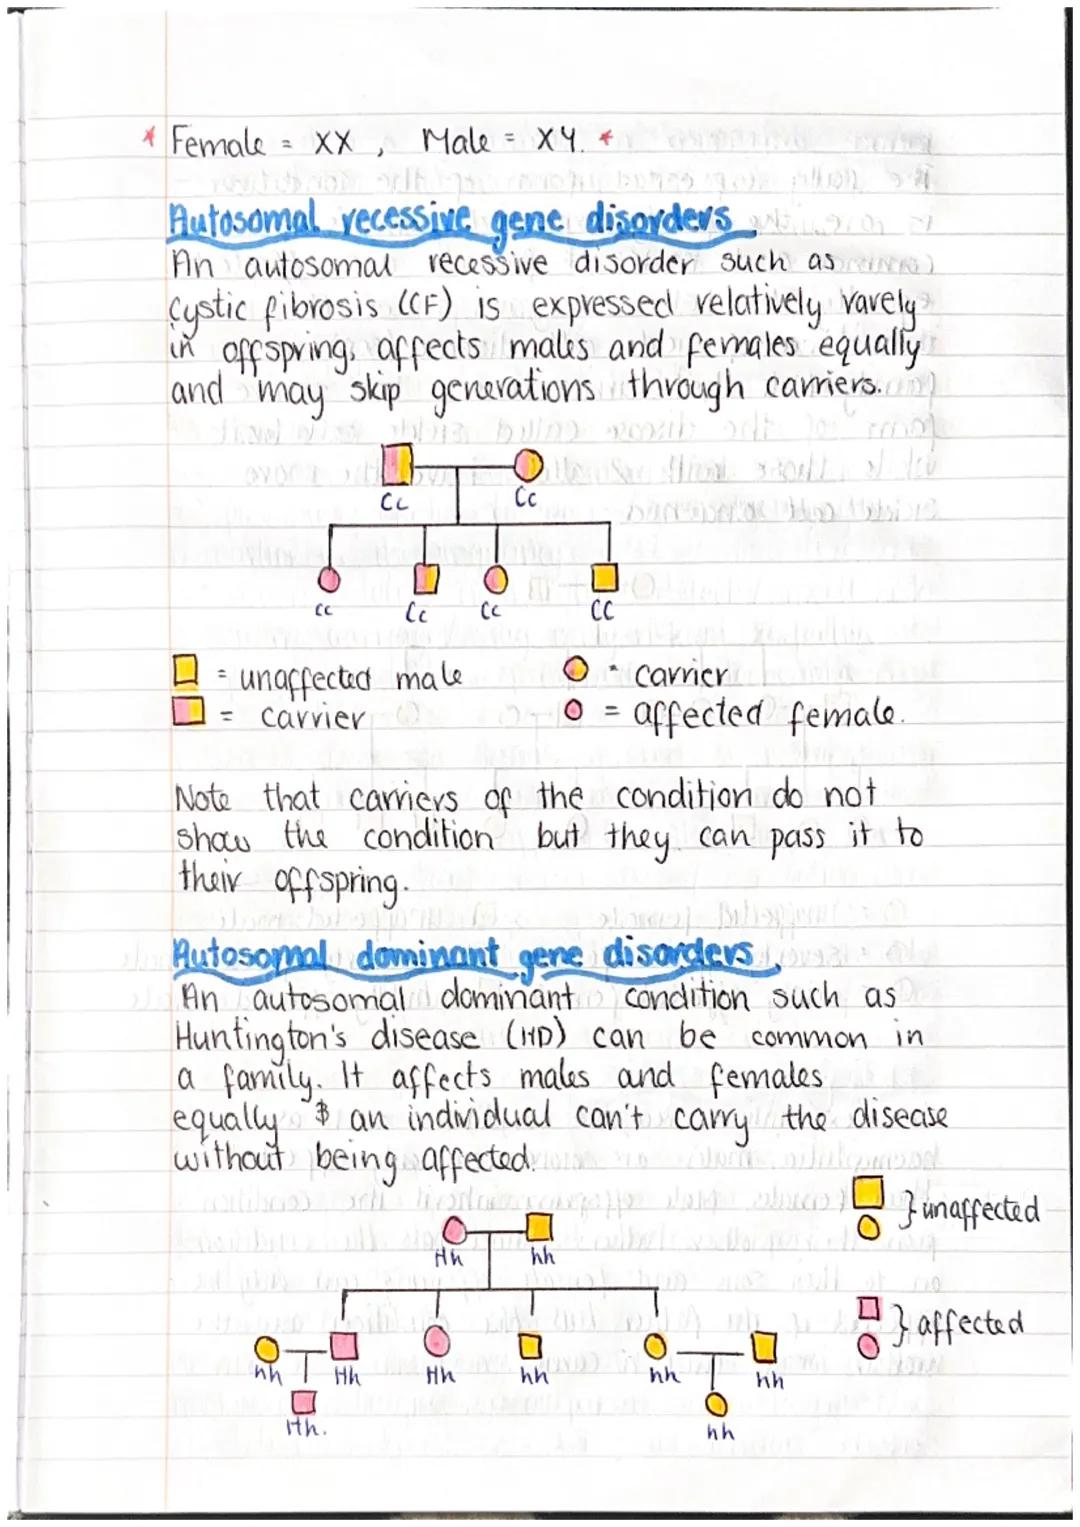 * Female = XX , Male = XY. *
Autosomal recessive gene disorders.
An autosomal recessive disorder such as
Cystic fibrosis (CF) is expressed relatively rarely
in offspring, affects males and females equally
and may skip generations through carriers.
Cc Cc
cc Cc Cc CC
= unaffected male = carrier
= carrier = affected female.
Note that carriers of the condition do not
show the condition but they can pass it to
their offspring.
Autosomal dominant gene disorders.
An autosomal dominant condition such as
Huntington's disease (HD) can be common in
a family. It affects males and females
equally & an individual can't carry the disease
without being affected.
} unaffected
Hh hh
} affected
hh Hh Hh hh hh hh
Hh. hh